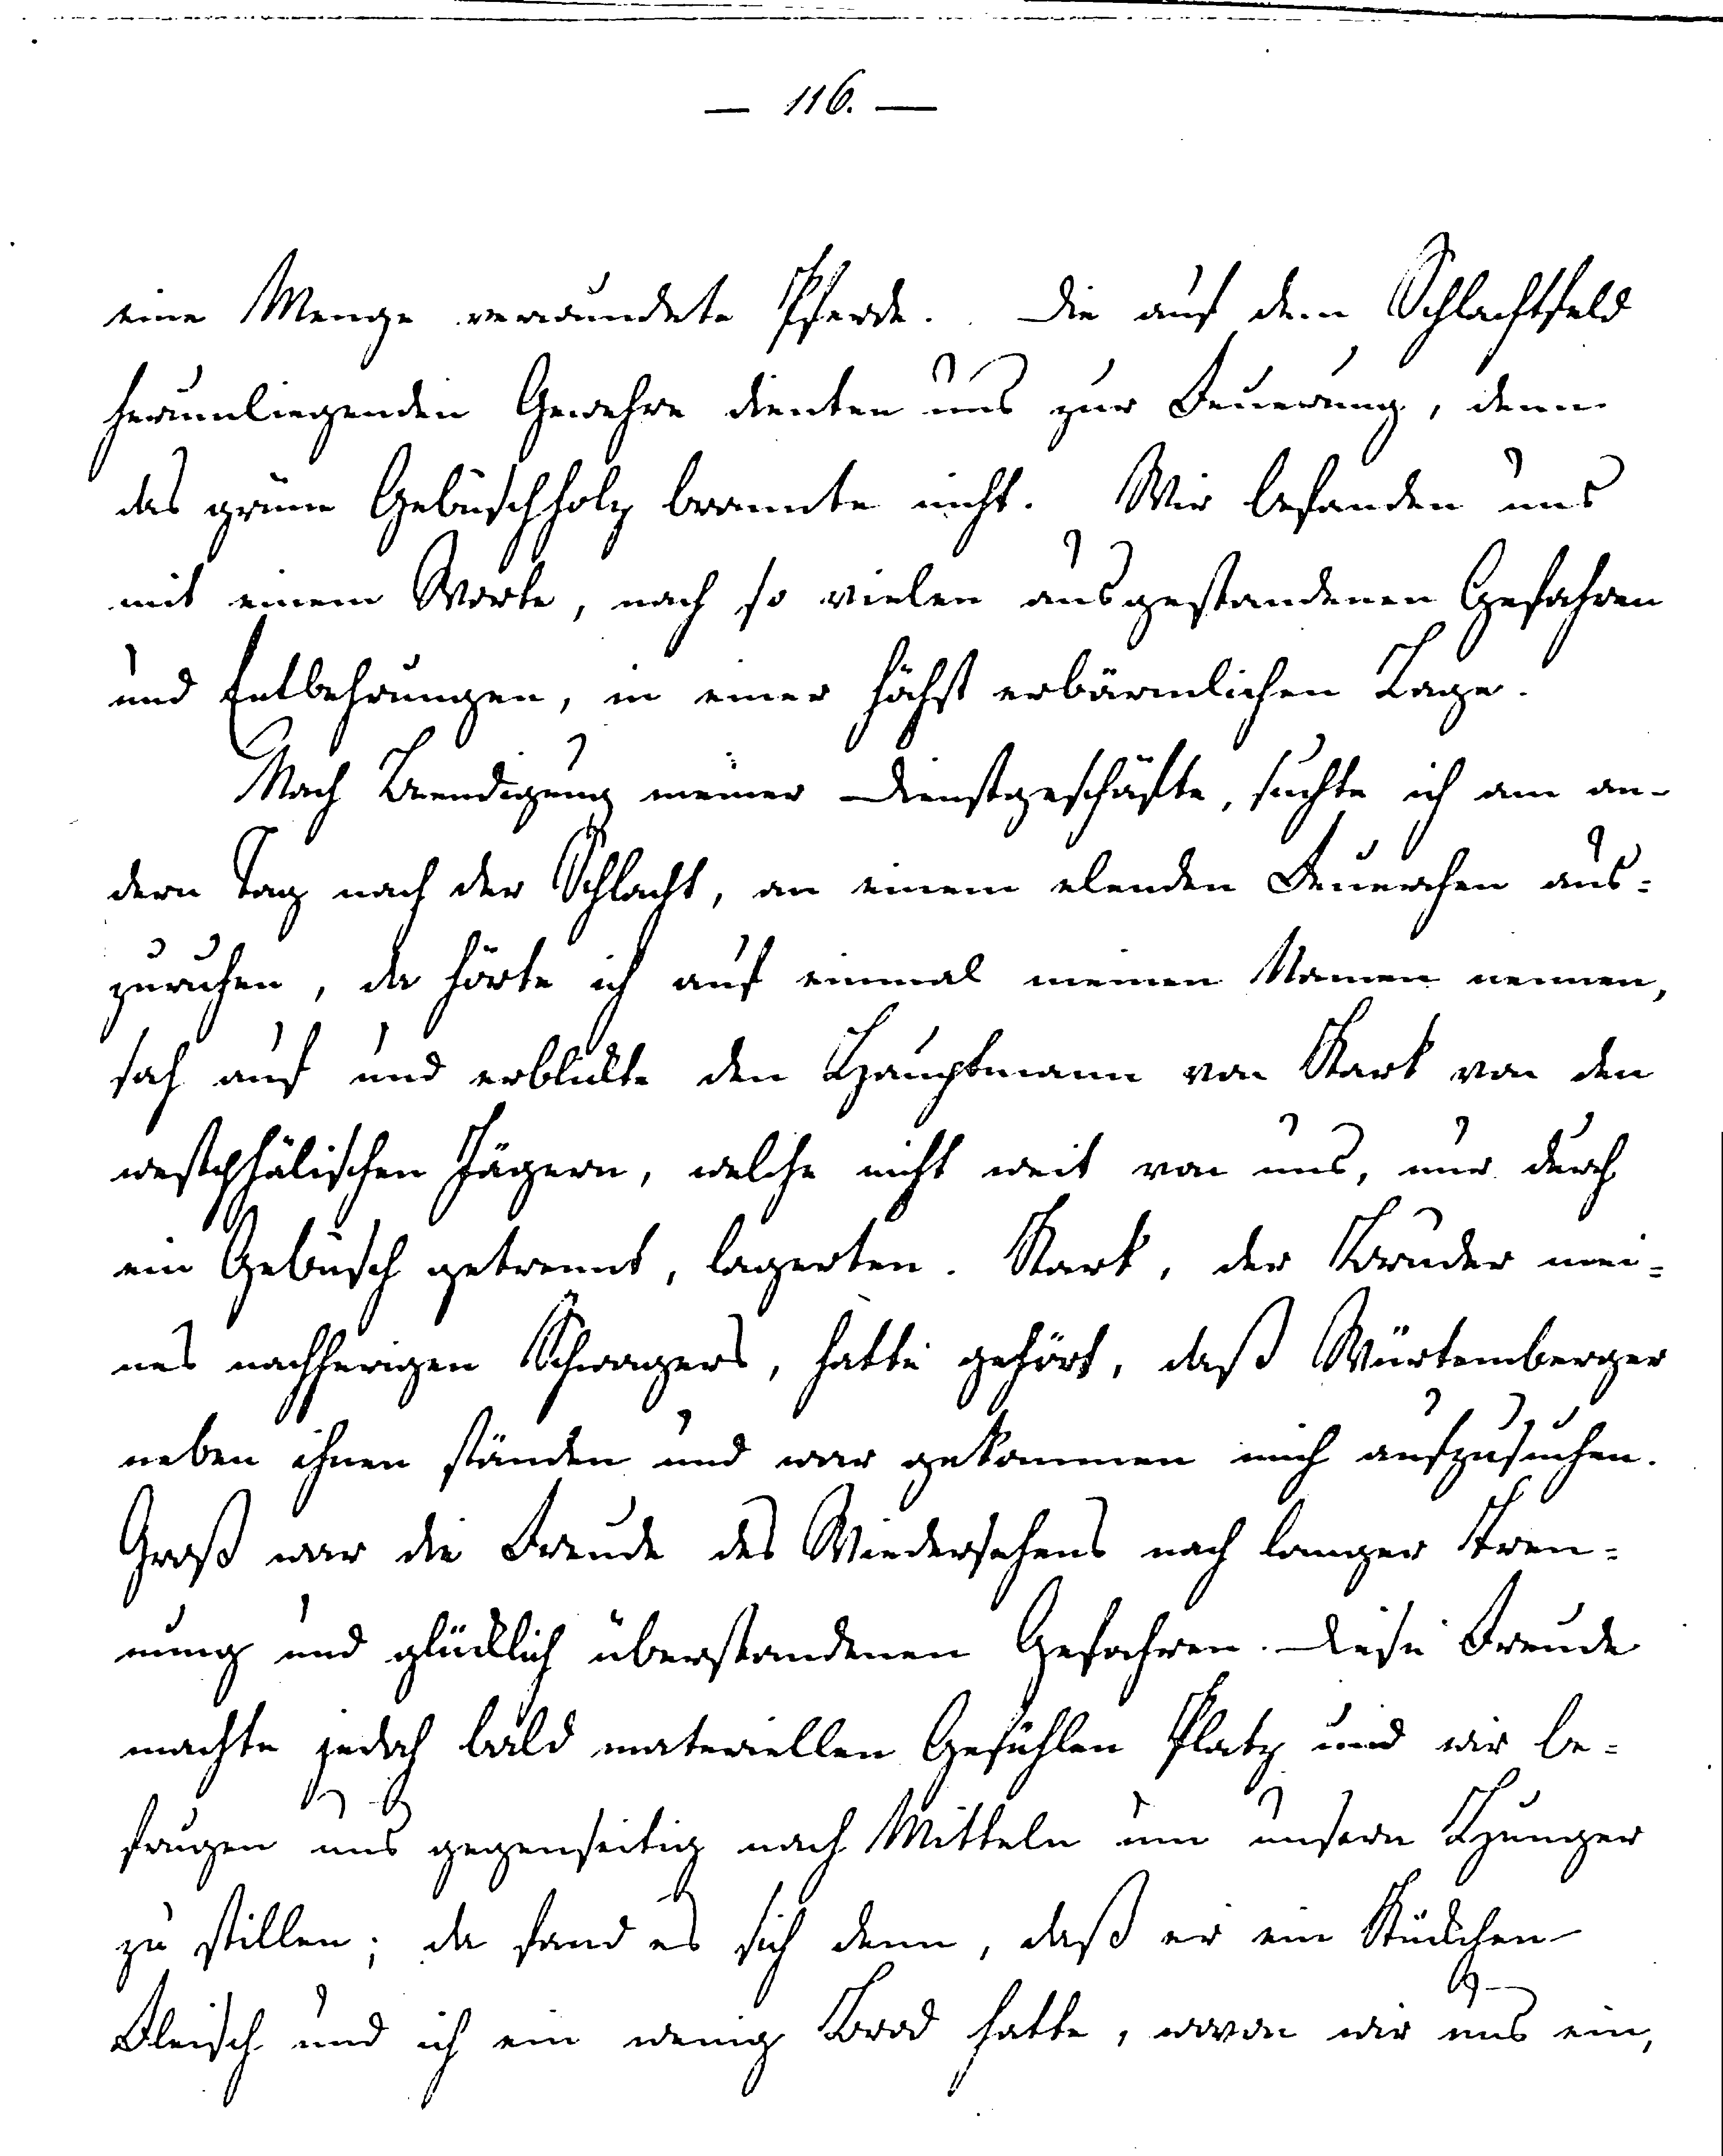 — 116. —
eine Menge verwundete Pferde. Die auf dem Schlachtfeld
herumliegenden Gewehre dienten uns zur Feuerung, denn
das grüne Gebüschholz brannte nicht. Wir befanden uns
mit einem Worte, nach so vielen ausgestandenen Gefahren
und Entbehrungen, in einer höchst erbärmlichen Lage.
Nach Beendigung meiner Dienstgeschäfte, suchte ich am an-
dern Tag nach der Schlacht, an einem elenden Feuerchen aus=
zuruhen, da hörte ich auf einmal meinen Namen nennen,
sah auf und erblickte den Hauptmann von Stark von den
westphälischen Jägern, welche nicht weit von uns, nur durch
ein Gebüsch getrennt, lagerten. Stark, der Bruder mei=
nes nachherigen Schwagers, hatte gehört, daß Würtemberger
neben ihnen ständen und war gekommen mich aufzusuchen.
Groß war die Freude des Wiedersehens nach langer Tren=
nung und glücklich überstandenen Gefahren. Diese Freude
machte jedoch bald materiellen Gefühlen Platz und wir be=
frugen uns gegenseitig nach Mitteln um unsern Hunger
zu stillen; da fand es sich denn, daß er ein Stückchen
Fleisch und ich ein wenig Brod hatte, wovon wir uns ein,